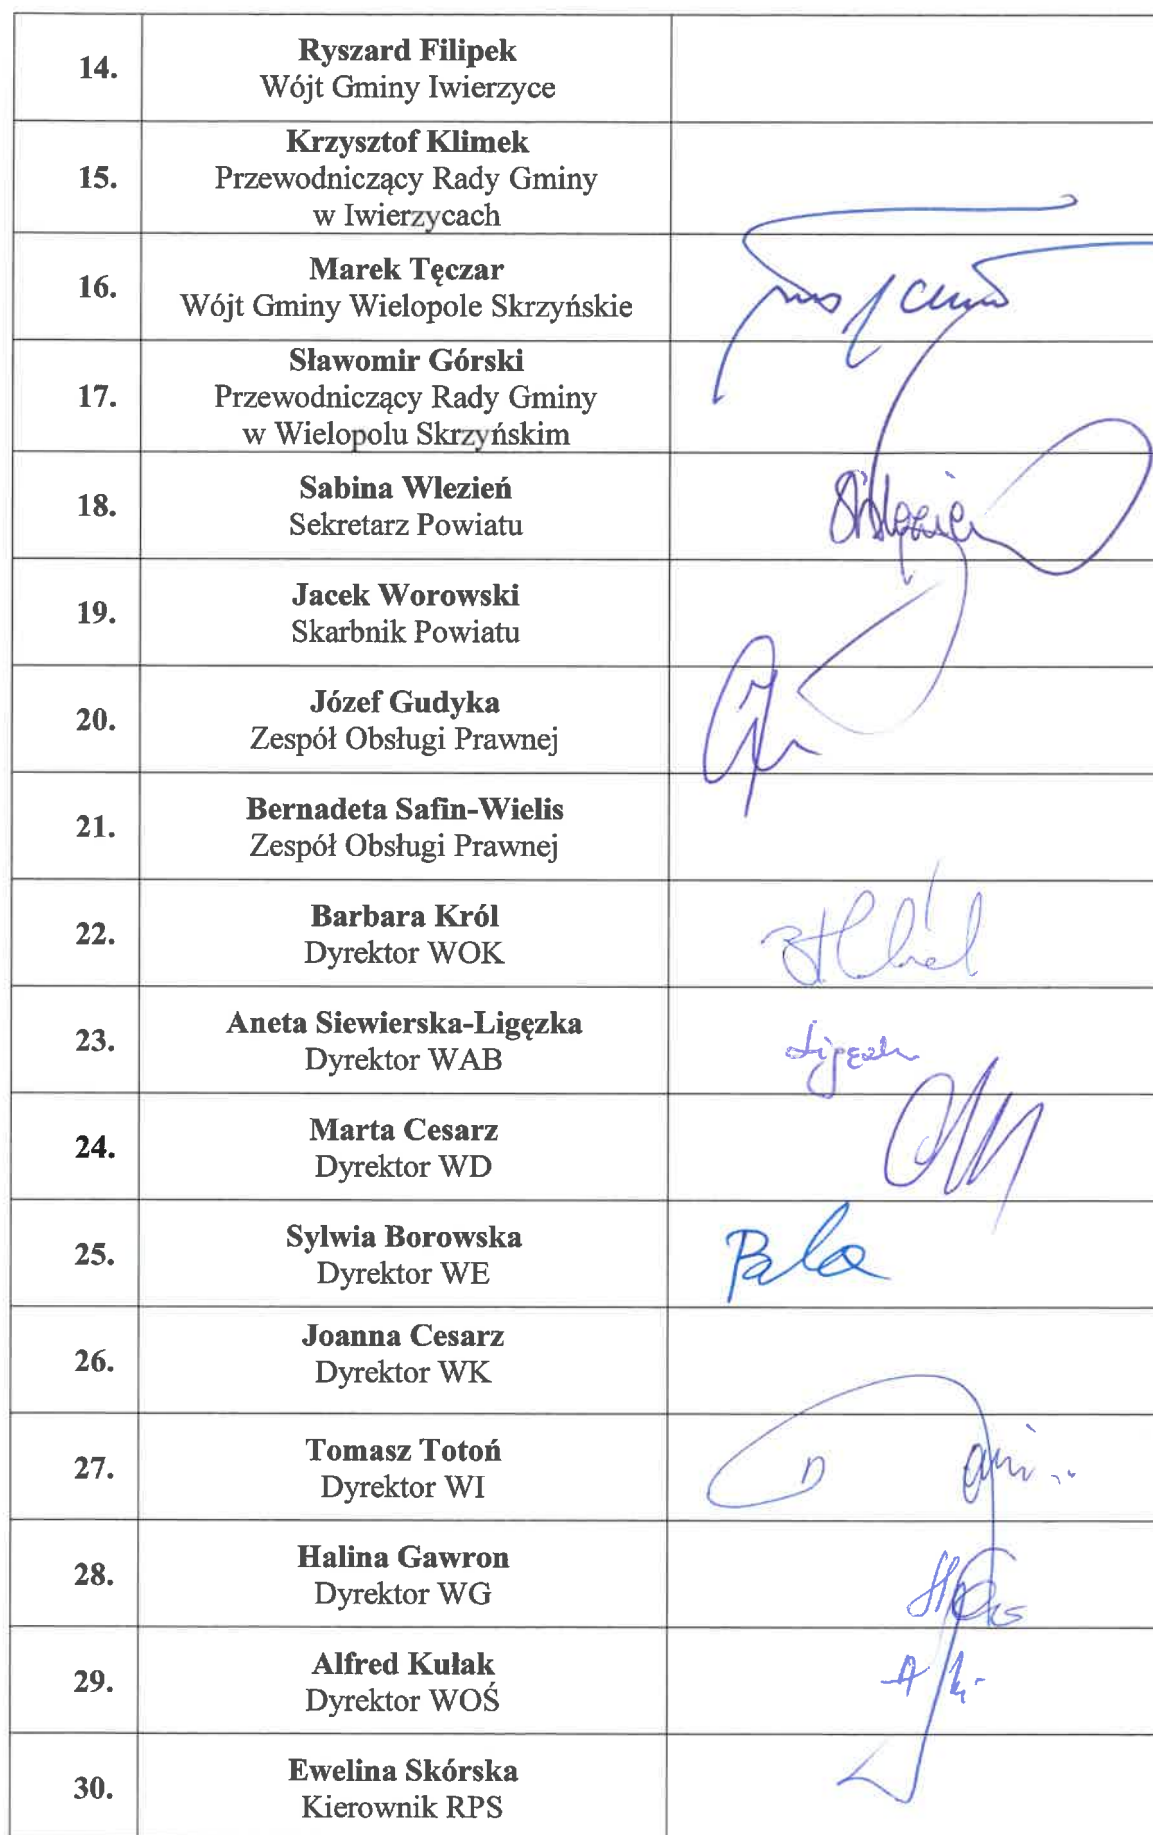 14.
Ryszard Filipek
Wójt Gminy Iwierzyce
15.
Krzysztof Klimek
Przewodniczący Rady Gminy
w Iwierzycach
16.
Marek Tęczar
Wójt Gminy Wielopole Skrzyńskie
17.
Sławomir Górski
Przewodniczący Rady Gminy
w Wielopolu Skrzyńskim
18.
Sabina Wlezień
Sekretarz Powiatu
19.
Jacek Worowski
Skarbnik Powiatu
20.
Józef Gudyka
Zespół Obsługi Prawnej
21.
Bernadeta Safin-Wielis
Zespół Obsługi Prawnej
22.
Barbara Król
Dyrektor WOK
23.
Aneta Siewierska-Ligęzka
Dyrektor WAB
24.
Marta Cesarz
Dyrektor WD
25.
Sylwia Borowska
Dyrektor WE
26.
Joanna Cesarz
Dyrektor WK
27.
Tomasz Totoń
Dyrektor WI
28.
Halina Gawron
Dyrektor WG
29.
Alfred Kułak
Dyrektor WOŚ
30.
Ewelina Skórska
Kierownik RPS